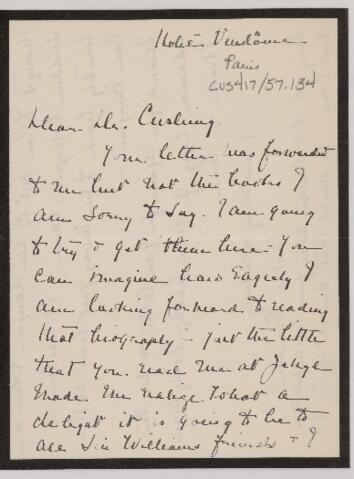 Hotel Vendôme
Paris
CUS417/57.134
Dear Dr. Cushing
Your letter was forwarded
to me but not the books I
am sorry to say. I am going
to try & get them here - You
can imagine how eagerly I
am looking forward to reading
that biography - just the little
that you read me at Jekyl
made me realize what a
delight it is going to be to
all Sir Williams friends - & I